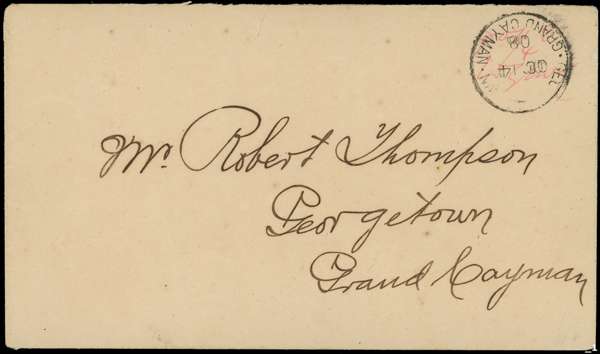 GRAND CAYMAN
OC 14
08
Mr. Robert Thompson
Georgetown
Grand Cayman